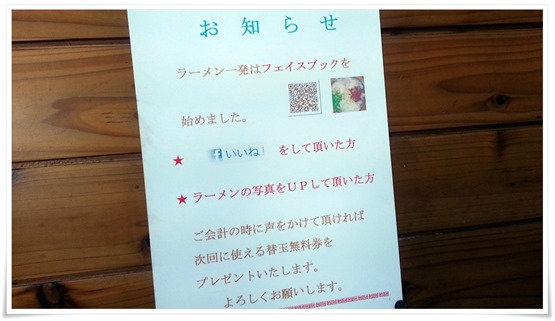 お知らせ
ラーメン一発はフェイスブックを
始めました。
★ いいね! をして頂いた方
★ ラーメンの写真をUPして頂いた方
ご会計の時に声をかけて頂ければ
次回に使える替玉無料券を
プレゼントいたします。
よろしくお願いします。